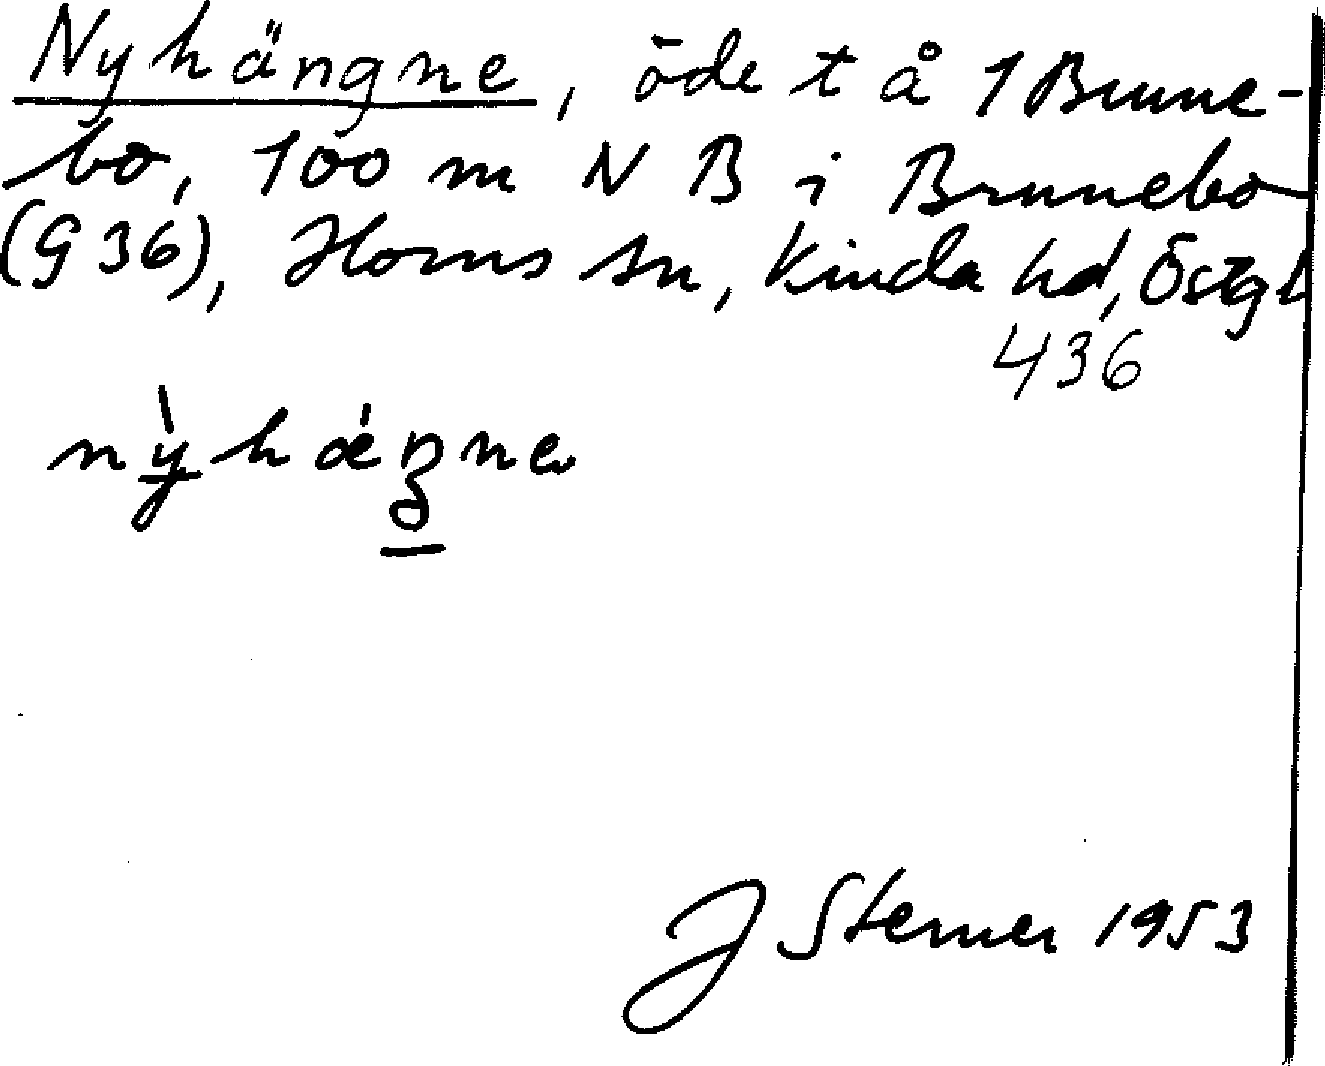 Nyhängne, öde t å 1 Brunne-
bo, 100 m N B i Brunnebo
(G 36), Horns sn, Kinda hd, Östgl
436
ny̌hǽŋne
J Sterner 1953